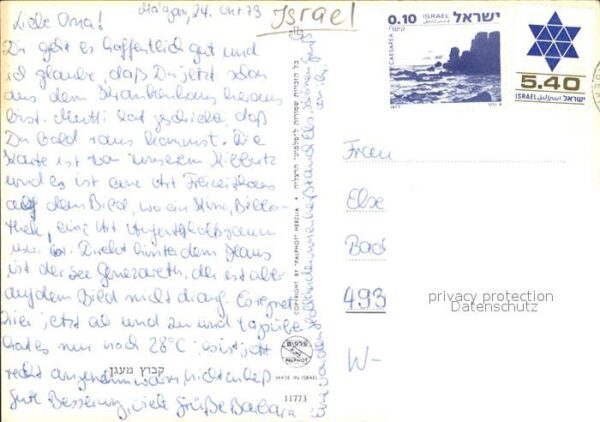 Maagan, 24. Okt. 79
Israel
Liebe Oma!
Dir geht es hoffentlich gut und
ich glaube, daß Du jetzt schon
aus dem Krankenhaus heraus
bist. Mutti hat geschrieben, daß
Du bald raus kommst. Die
Karte ist von unserem Kibbutz
und es ist eine Art Freizeithaus
auf dem Bild, wo ein Kino, Biblio-
thek, eine Art Aufenthaltsraum
usw. ist. Direkt hinter dem Haus
ist der See Genezareth, der ist aber
auf dem Bild nicht drauf. Es regnet
hier jetzt ab und zu und tagsüber
hat es nur noch 28°C, es ist jetzt
recht angenehm warm, nicht zu heiß
Gute Besserung, viele Grüße Barbara
כל הזכויות שמורות ל"פלפוט" הרצליה
COPYRIGHT BY "PALPHOT" HERZLIA
פלפוט
PALPHOT
MADE IN ISRAEL
קבוץ מעגן
11773
0.10 ISRAEL ישראל
CAESAREA קיסריה
1977
5.40
ISRAEL اسرائيل ישראל
Frau
Else
Bad
493
W-
privacy protection
Datenschutz